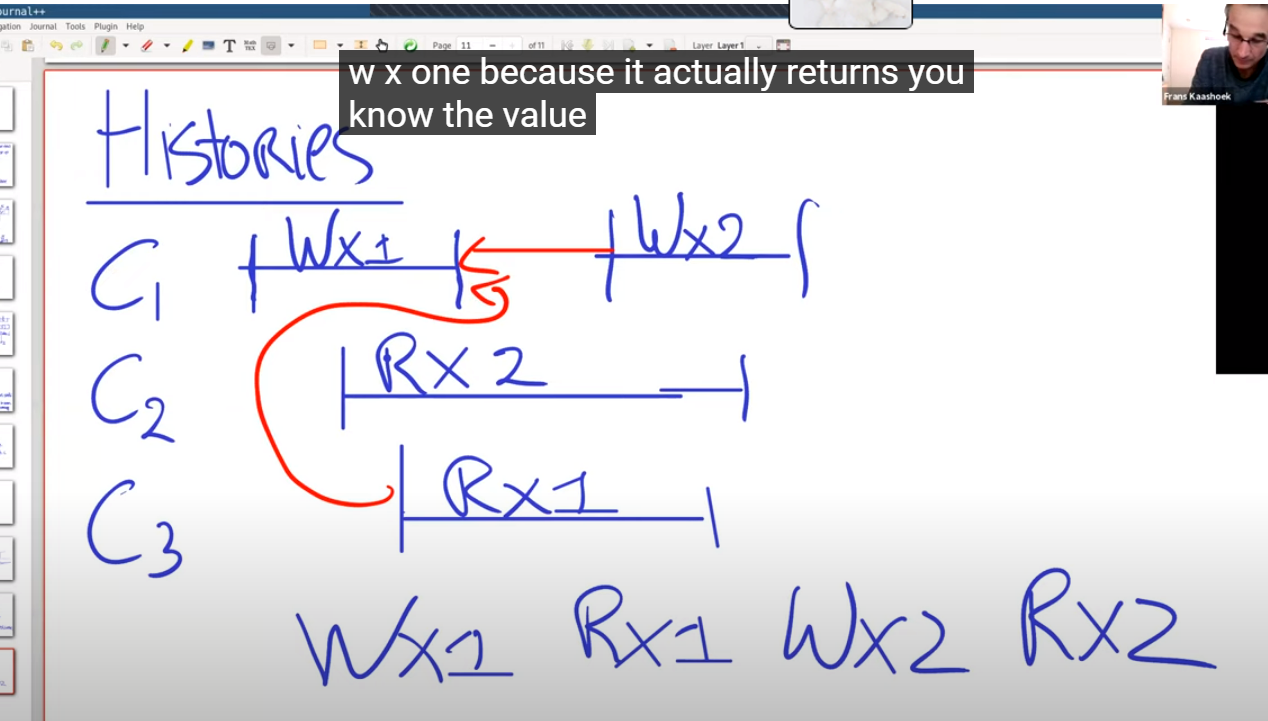 ournal++
gation Journal Tools Plugin Help
T Page 11 of 11 Layer Layer 1
w x one because it actually returns you
know the value
Frans Kaashoek
Histories
C1 Wx1 Wx2
C2 Rx2
C3 Rx1
Wx1 Rx1 Wx2 Rx2